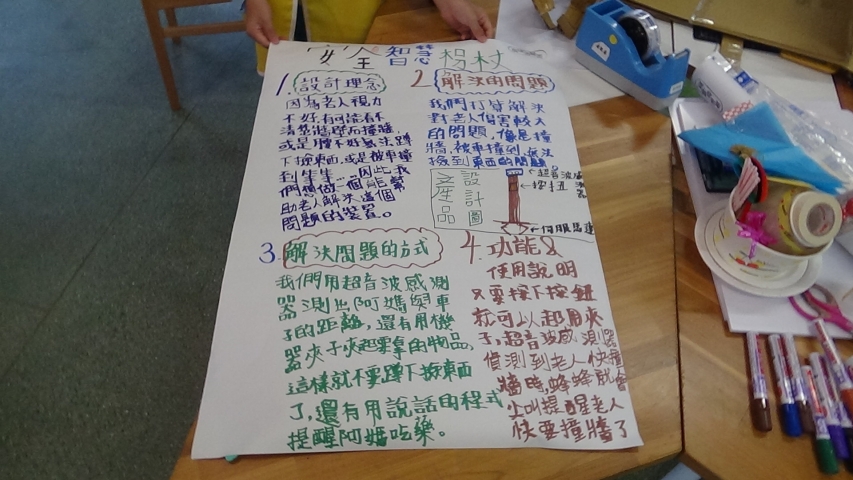 安全智慧枴杖
1. 設計理念
因為老人視力
不好,有可能看不
清楚牆壁而撞牆,
或是腰不好無法蹲
下撿東西,或是被車撞
到等等……因此我
們想做一個能幫
助老人解決這個
問題的裝置。
2 解決的問題
我們打算解決
對老人傷害較大
的問題,像是撞
牆,被車撞到,無法
撿到東西的問題
產品
設計圖
超音波感
按鈕
伺服馬達
3. 解決問題的方式
我們用超音波感測
器測出阿媽與車
子的距離,還有用機
器夾子夾起要拿的物品,
這樣就不要蹲下撿東西
了,還有用說話的程式
提醒阿媽吃藥。
4. 功能&
使用說明
只要按下按鈕
就可以起用夾
子,超音波感測器
偵測到老人快撞
牆時,蜂蜂就會
尖叫提醒老人
快要撞牆了